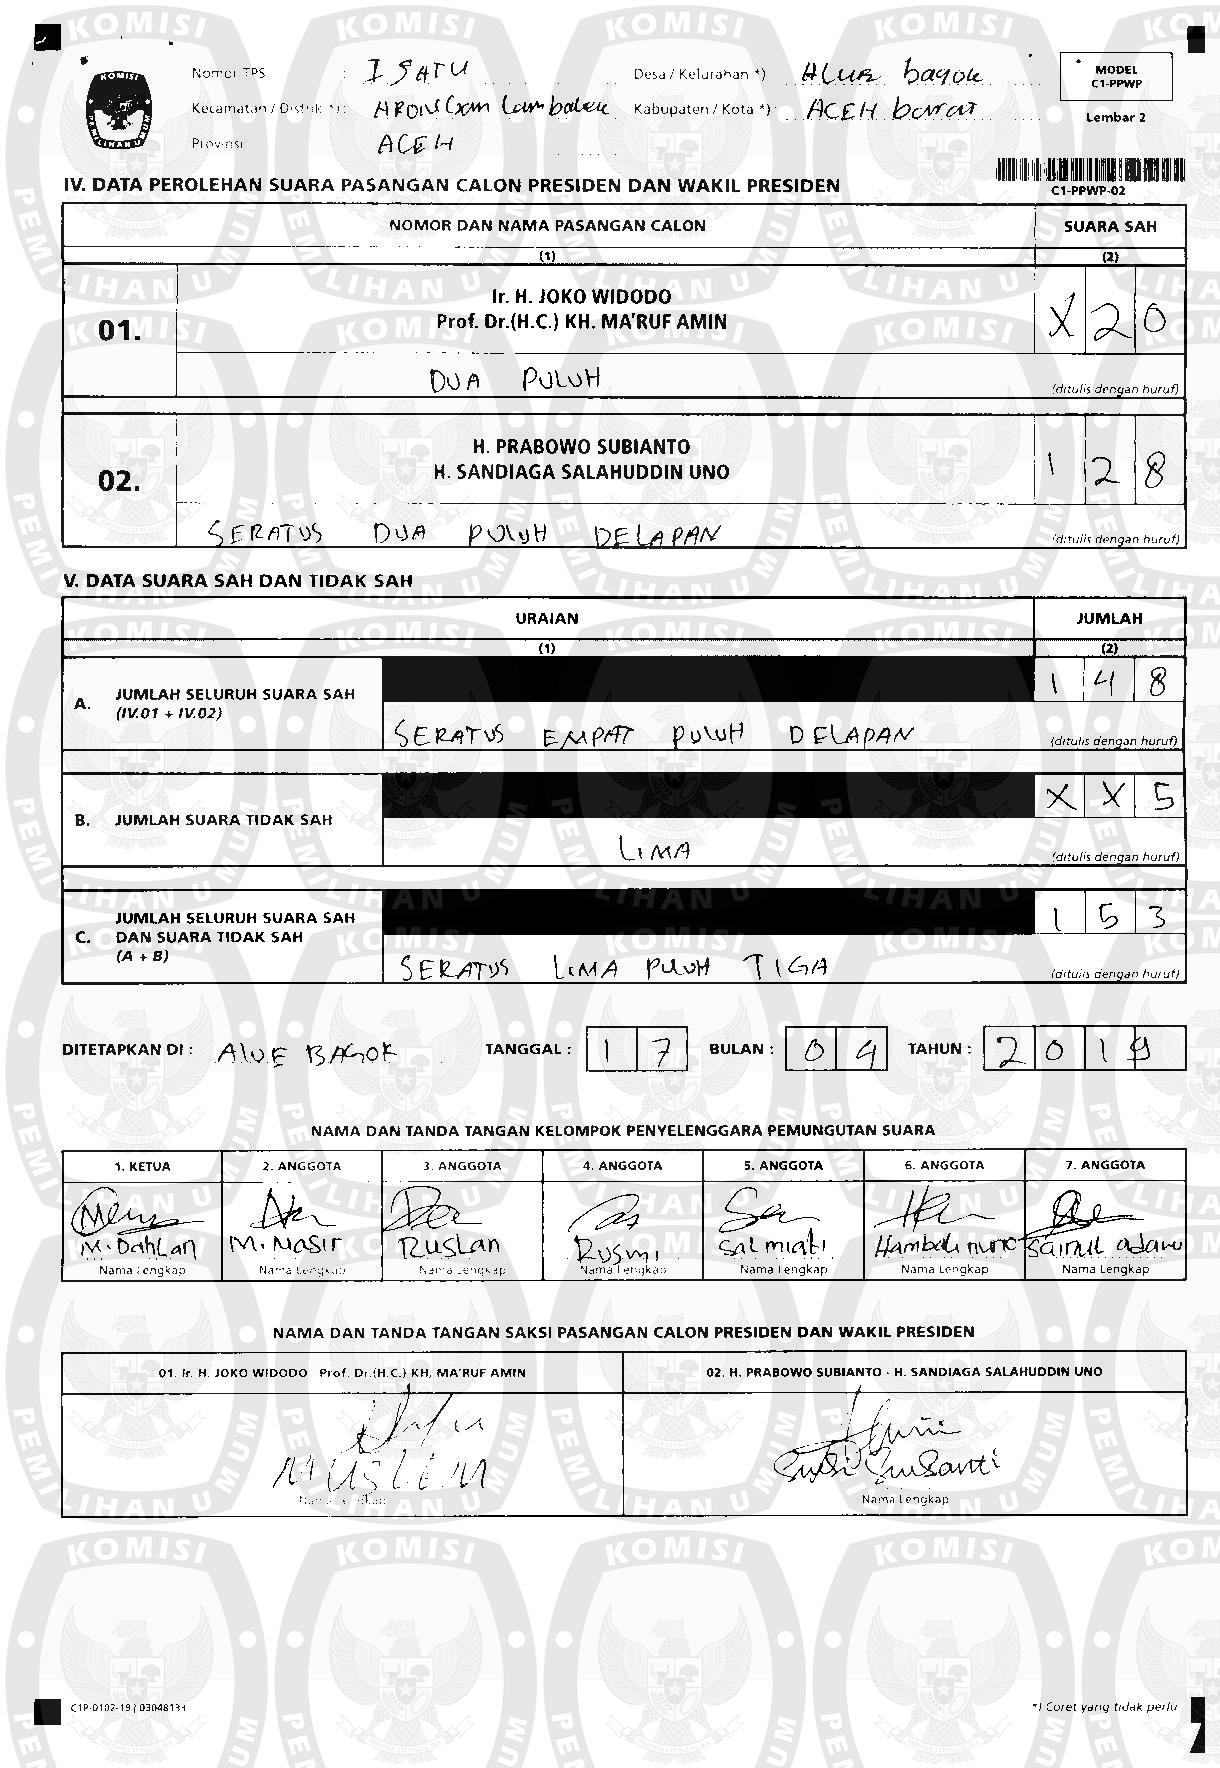 Nomor TPS : I SATU Desa / Kelurahan *) : ALUE bagok MODEL C1-PPWP
Kecamatan / Distrik *) : Kabupaten / Kota *) : ACEH barat Lembar 2
Provinsi ACEH
IV. DATA PEROLEHAN SUARA PASANGAN CALON PRESIDEN DAN WAKIL PRESIDEN
C1-PPWP-02
NOMOR DAN NAMA PASANGAN CALON SUARA SAH
(1) (2)
01. Ir. H. JOKO WIDODO
Prof. Dr.(H.C.) KH. MA'RUF AMIN X 2 0
DUA PULUH (ditulis dengan huruf)
02. H. PRABOWO SUBIANTO
H. SANDIAGA SALAHUDDIN UNO 1 2 8
SERATUS DUA PULUH DELAPAN (ditulis dengan huruf)
V. DATA SUARA SAH DAN TIDAK SAH
URAIAN JUMLAH
(1) (2)
A. JUMLAH SELURUH SUARA SAH
(IV.01 + IV.02) 1 4 8
SERATUS EMPAT PULUH DELAPAN (ditulis dengan huruf)
B. JUMLAH SUARA TIDAK SAH X X 5
LIMA (ditulis dengan huruf)
C. JUMLAH SELURUH SUARA SAH
DAN SUARA TIDAK SAH
(A + B) 1 5 3
SERATUS LIMA PULUH TIGA (ditulis dengan huruf)
DITETAPKAN DI : AlUE BAGOK TANGGAL : 1 7 BULAN : 0 4 TAHUN : 2 0 1 9
NAMA DAN TANDA TANGAN KELOMPOK PENYELENGGARA PEMUNGUTAN SUARA
1. KETUA 2. ANGGOTA 3. ANGGOTA 4. ANGGOTA 5. ANGGOTA 6. ANGGOTA 7. ANGGOTA
M. Dahlan M. Nasir RUSLan Rusmi Salmiati
Nama Lengkap Nama Lengkap Nama Lengkap Nama Lengkap Nama Lengkap Nama Lengkap Nama Lengkap
NAMA DAN TANDA TANGAN SAKSI PASANGAN CALON PRESIDEN DAN WAKIL PRESIDEN
01. Ir. H. JOKO WIDODO Prof. Dr.(H.C.) KH. MA'RUF AMIN 02. H. PRABOWO SUBIANTO - H. SANDIAGA SALAHUDDIN UNO
MUSLEM Susi Susanti
Nama Lengkap Nama Lengkap
*) Coret yang tidak perlu